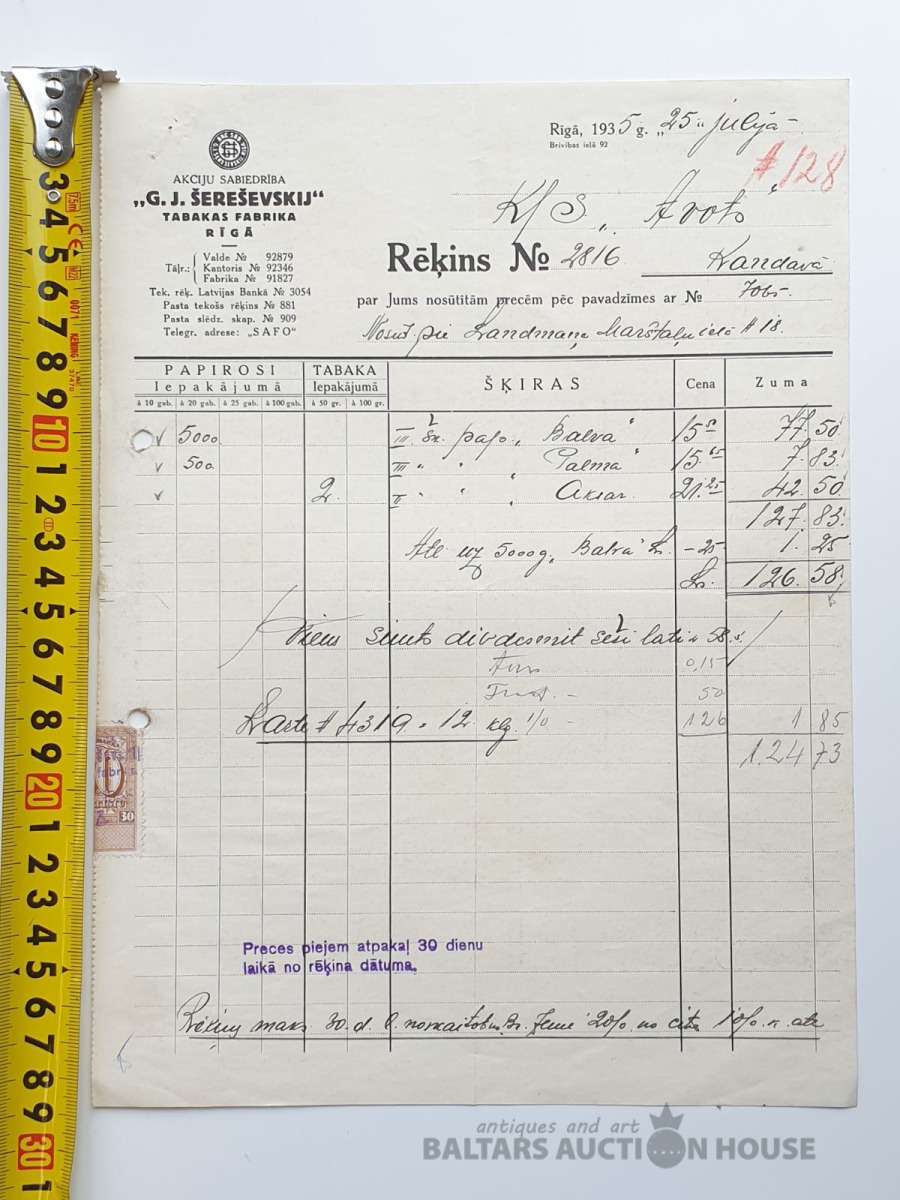 Rīgā, 1935 g. „25„ julijā
Brīvības ielā 92
# 128
AKCIJU SABIEDRĪBA
„G. J. ŠEREŠEVSKIJ“
TABAKAS FABRIKA
RĪGĀ
Tāļr.: Valde № 92879
Kantoris № 92346
Fabrika № 91827
Tek. rēķ. Latvijas Bankā № 3054
Pasta tekošs rēķins № 881
Pasta slēdz. skap. № 909
Telegr. adrese: „SAFO“
K/S „Avots“
Rēķins № 2816 Kandavā
par Jums nosūtītām precēm pēc pavadzīmes ar №
Nosūt. pie Landmaņa Marstaļu ielā # 18.
PAPIROSI TABAKA ŠĶIRAS Cena Zuma
Iepakājumā Iepakājumā
à 10 gab. à 20 gab. à 25 gab. à 100 gab. à 50 gr. à 100 gr.
5000. III šķ. pap. „Balva“ 15 50 77. 50.
500. III „ „ „Palma“ 15. 65 7. 83.
2. II „ „ „ 21. 25 42. 50
127. 83.
Atl. uz 5000 g. „Balva“ Ls. -25 1. 25
Ls. 126. 58.
Viens simts divdesmit seši lati un 58 s.
0,15
50
# 4319. = 12 klg. 1% - 126 1 85
124 73
30
Preces pieņem atpakaļ 30 dienu
laikā no rēķina dātuma.
Rēķins maks. 30. d. 2% no 1% atl
antiques and art
BALTARS AUCTION HOUSE